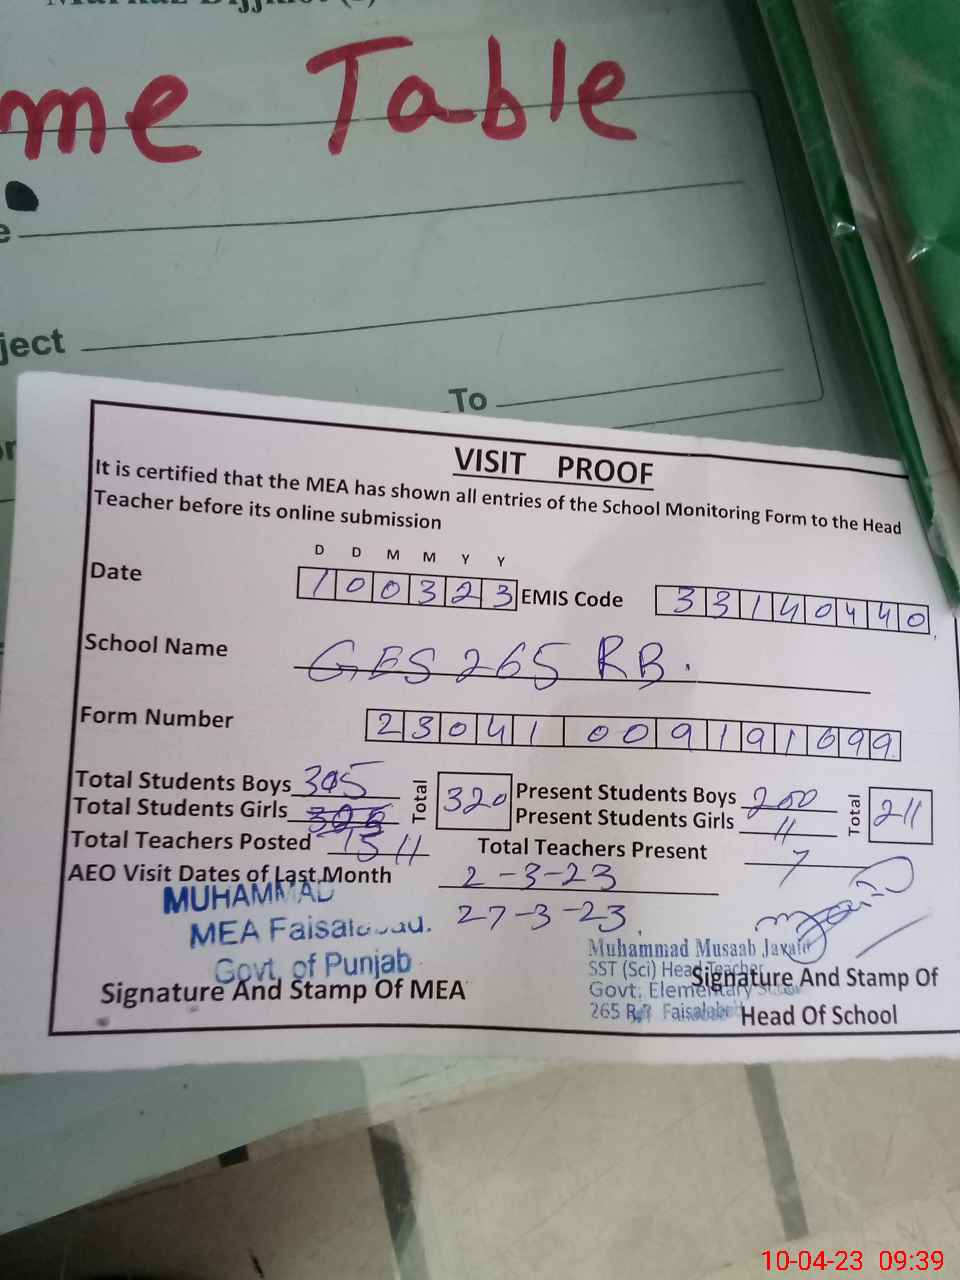 me Table
e
ject
To
VISIT PROOF
It is certified that the MEA has shown all entries of the School Monitoring Form to the Head
Teacher before its online submission
D D M M Y Y
Date 100323 EMIS Code 33140440
School Name GES 265 RB.
Form Number 23041 009191699
Total Students Boys 305 Total 320 Present Students Boys 200 Total 211
Total Students Girls Present Students Girls 11
Total Teachers Posted 11 Total Teachers Present 7
AEO Visit Dates of Last Month 2-3-23
27-3-23
MUHAMMAD
MEA Faisalabad.
Govt. of Punjab
Signature And Stamp Of MEA
Muhammad Musaab Javaid
SST (Sci) Head Teacher
Govt. Elementary School
265 R.B Faisalabad
Signature And Stamp Of
Head Of School
10-04-23 09:39